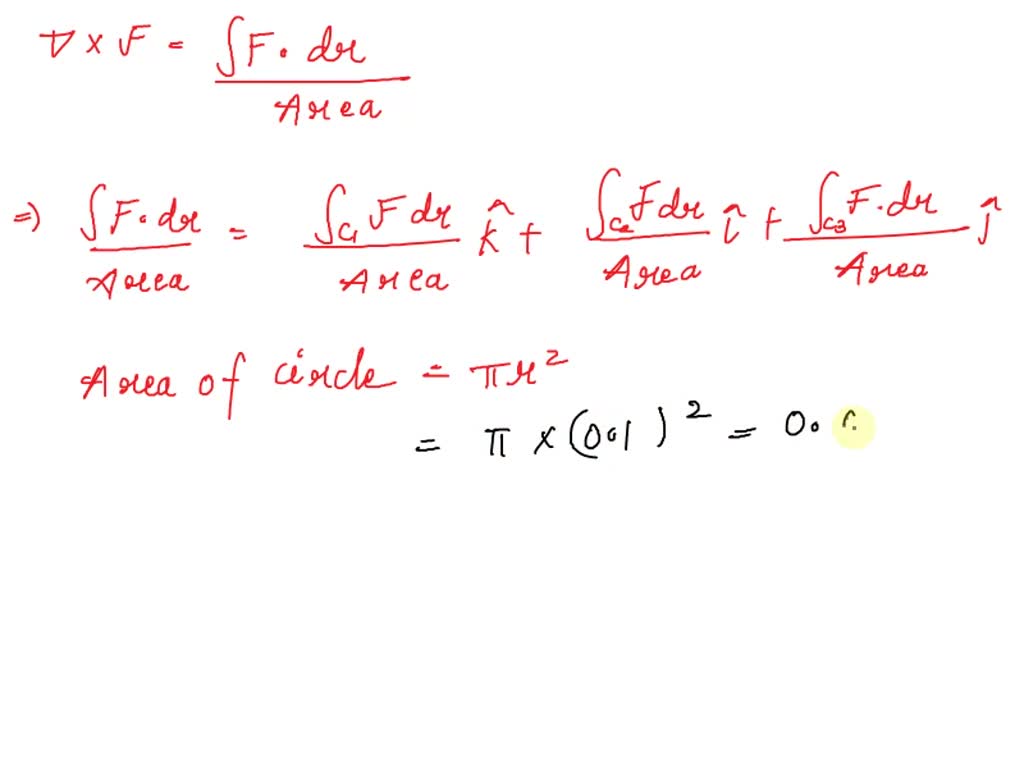 ∇ × F = ∫F · dr / Area
⇒ ∫F · dr / Area = ∫C1 F dr / Area k̂ + ∫C2 F dr / Area î + ∫C3 F · dr / Area ĵ
Area of circle = πr²
= π × (0.1)² = 0.